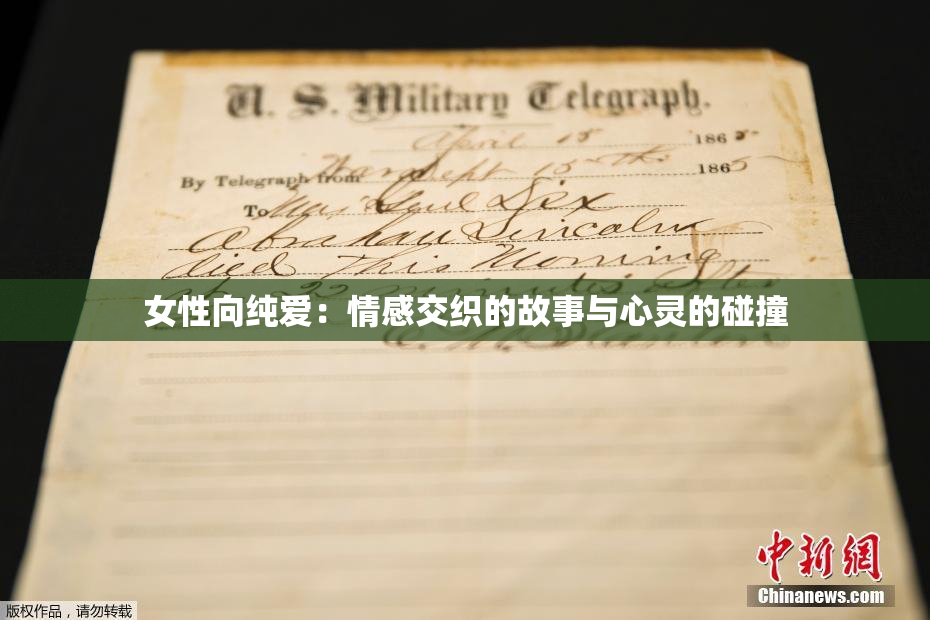 U. S. Military Telegraph.
April 15 1865
By Telegraph from War Dept 15th 1865
To Maj Genl Dix
Abraham Lincoln
died This Morning
at 22 minutes after
女性向纯爱：情感交织的故事与心灵的碰撞
E. M. Stanton
中新網
Chinanews.com
版权作品，请勿转载